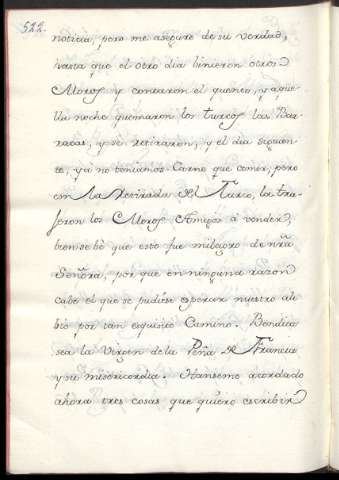 522.
noticia, pero me aseguro de su verdad,
hasta que el otro dia binieron otros
Moros y contaron el quento, y aque
lla noche quemaron los turcos las Bar
racas, y se retiraron, y el dia siguien
te, ya no teniamos Carne que comer, pero
con la Retirada del Turco, la tra
jeron los Moros Amigos a vender,
bien se bé que esto fue milagro de nrã
Señora, por que en ninguna razon
cabe el que se pudiese esperar nuestro ali
bio por tan exquisito Camino. Bendita
sea la Virgen de la Peña de Francia
y su misericordia. Hanseme acordado
ahora tres cosas que quiero escribir